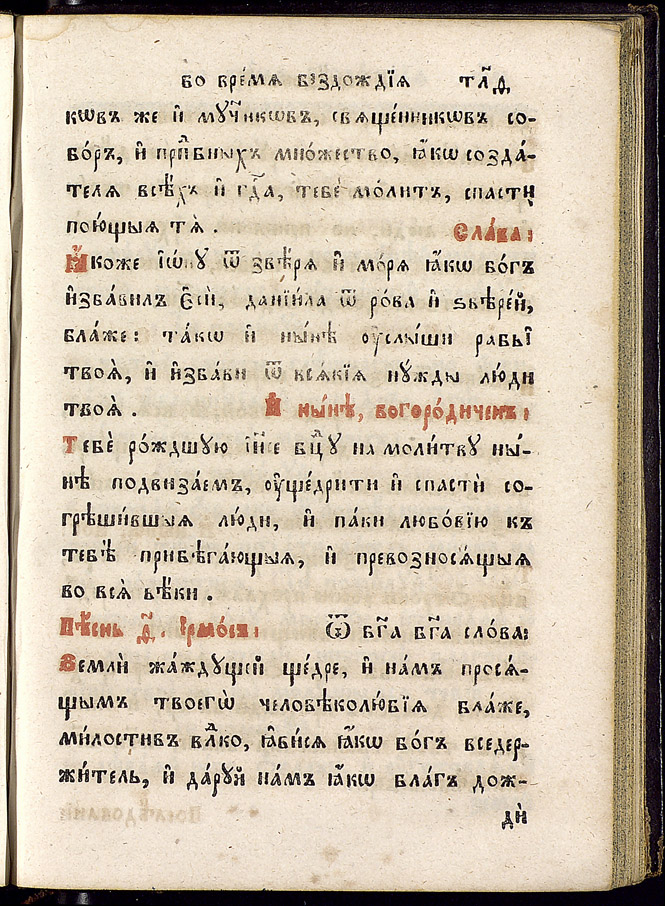 во вре́мѧ бездождїѧ тл҃д
кѡвъ же и҆ мꙋ́ч҃икѡвъ, свѧще́нникѡвъ со-
бо́ръ, и҆ прп҇бныхъ мно́жество, ꙗ҆́кѡ созда́-
телѧ всѣ́хъ и҆ гд҇а, тебѐ мо́литъ, спасти
пою́щыѧ тѧ̀ . Сла́ва:
Ꙗ҆́коже і҆ѡ́нꙋ ѿ ѕвѣ́рѧ и҆ мо́рѧ ꙗ҆́кѡ бо́гъ
и҆зба́вилъ є҆сѝ, данїи́ла ѿ ро́ва и҆ ѕвѣре́й,
бла́же: та́кѡ и҆ ны́нѣ ᲂу҆слы́ши рабы̑
твоѧ̑, и҆ и҆зба́ви ѿ всѧ́кїѧ нꙋ́жды лю́ди
твоѧ̑ . И҆ ны́нѣ, богоро́диченъ:
Тебѐ ро́ждшꙋю і҆и҃се бц҃ꙋ на моли́твꙋ ны́-
нѣ подвиза́емъ, ᲂу҆ще́дрити и҆ спастѝ со-
грѣши́вшыѧ лю́ди, и҆ па́ки любо́вїю къ
тебѣ̀ прибѣга́ющыѧ, и҆ превозносѧ́щыѧ
во всѧ̑ вѣ́ки .
Пѣ́снь д҃. Ірмо́съ: Ѿ бг҃а бг҃а сло́ва:
Землѝ жа́ждꙋщей ще́дре, и҆ на́мъ просѧ́-
щымъ твоегѡ̀ человѣколю́бїѧ бла́же,
ми́лостивъ влⷣко, ꙗ҆ви́сѧ ꙗ҆́кѡ бо́гъ вседер-
жи́тель, и҆ да́рꙋй на́мъ ꙗ҆́кѡ бла́гъ дож-
дѝ